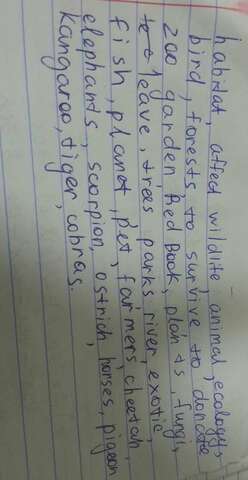 habitat, affed wildlife animal, ecology,
bird, forests, to survive to donate
zoo garden Red Book, plants, fungi,
leave, trees parks river, exotic,
fish, planet, pet, farmers, cheetah,
elephants, scorpion, ostrich, horses, pigeon
kangaroo, tiger, cobras.